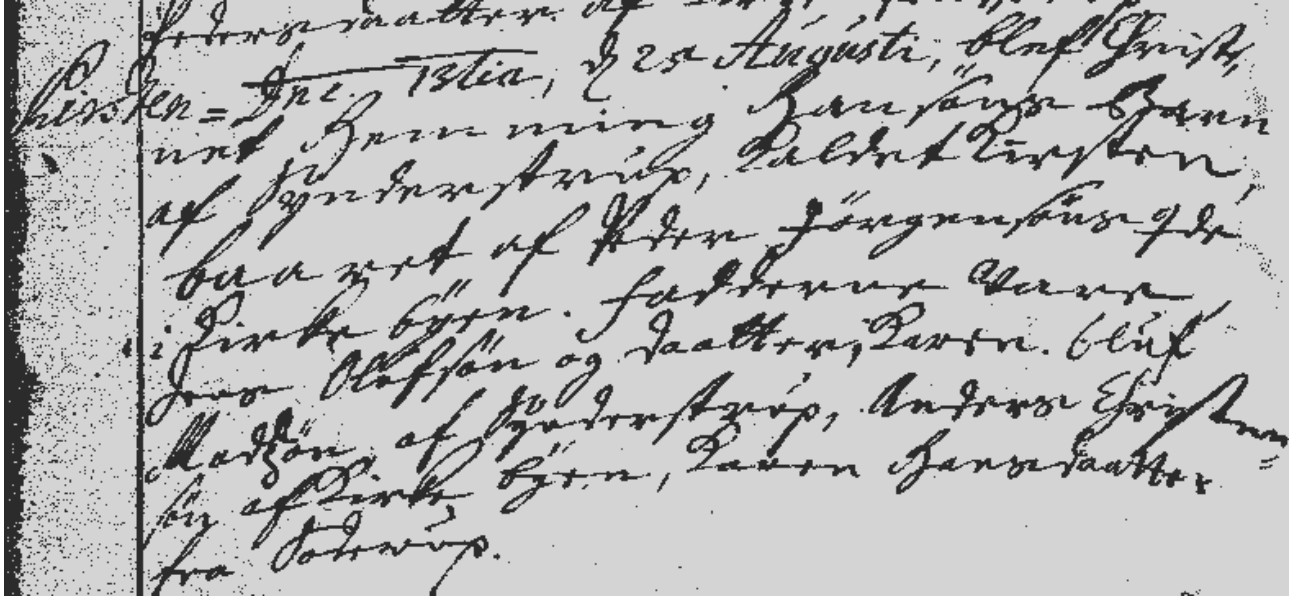 Pedersdaatter af
Kirsten = Dnc. 13tia, d 25 Augusti, blef Christ,
net Hemming Hansöns Barn
af Synderstrup, kaldet Kirsten,
baaret af Peder Jörgensöns qde
i Kirke byen. Fadderne vare
Jens Olefsön og daatter, Karen. Oluf
Madsön, af Synderstrup, Anders Christen=
sön af Kirke byen, Karen Hansdaatter
fra Soderup.